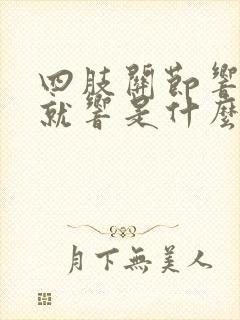 四肢關節響
就響是什麼
月下無美人